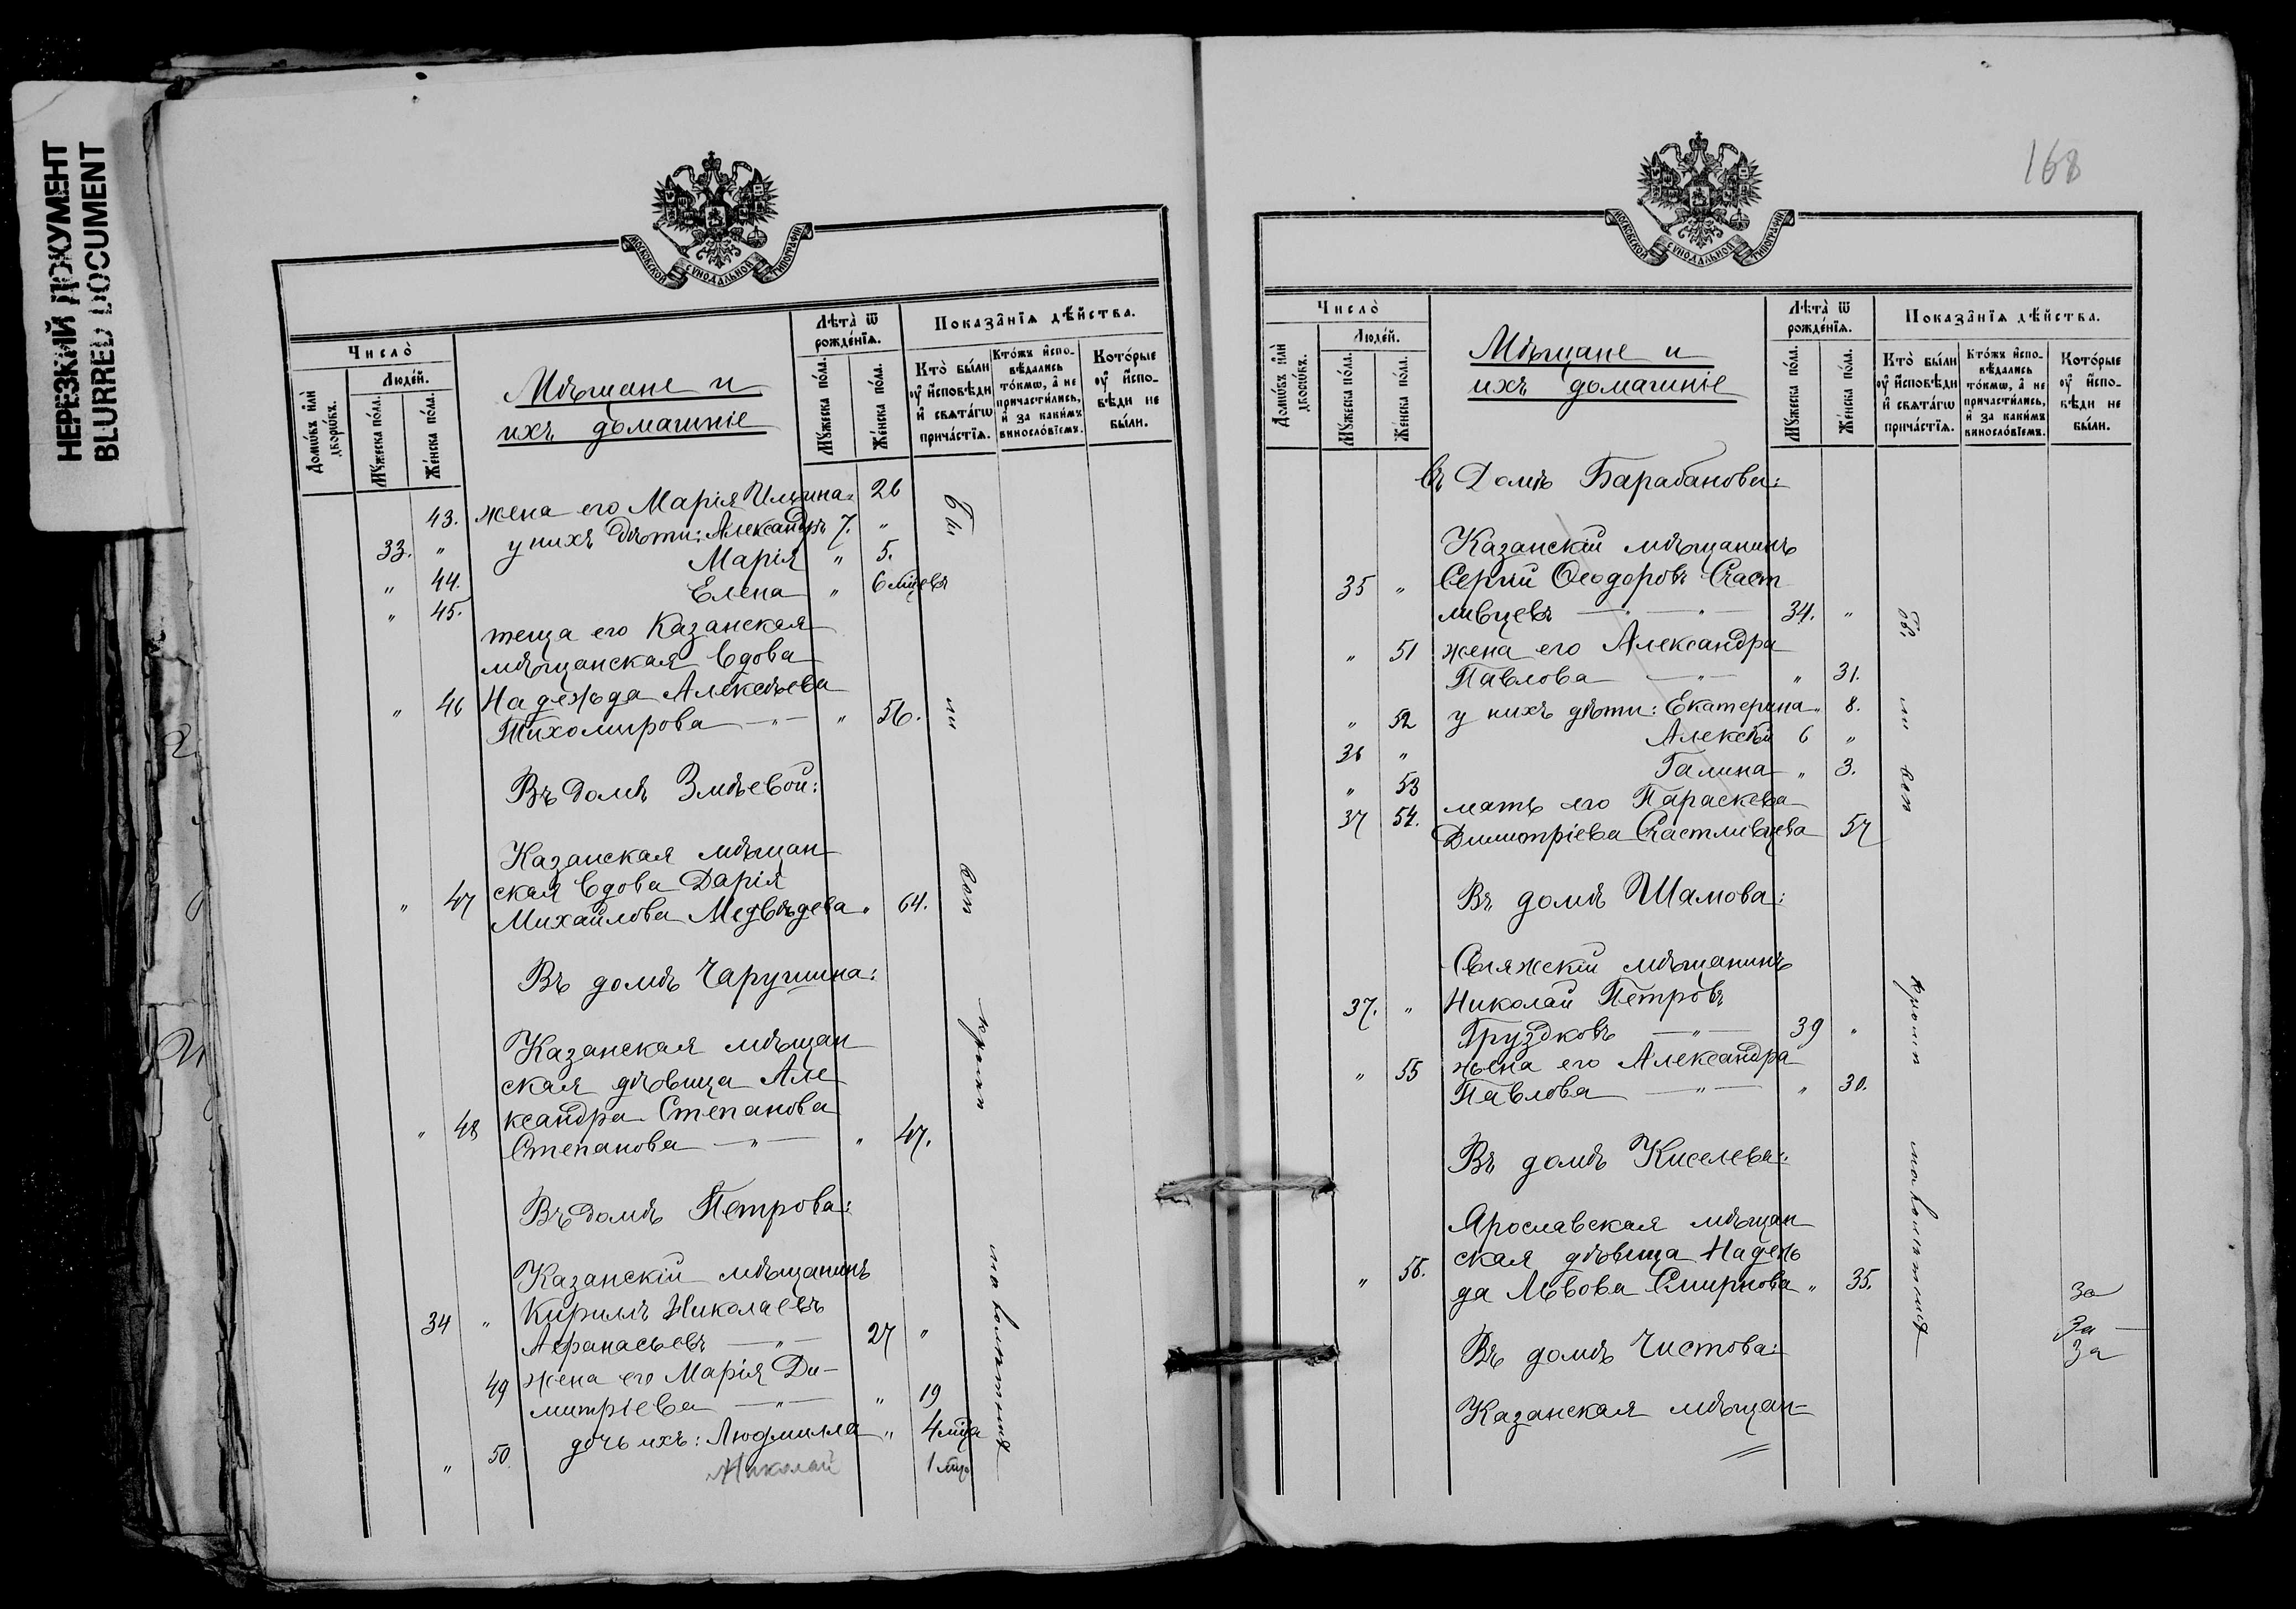 НЕРЕЗКИЙ ДОКУМЕНТ
BLURRED DOCUMENT
МОСКОВСКОЙ СУНОДАЛЬНОЙ ТИПОГРАФІИ
Число̀
Домѡ́въ и҆лѝ дворѡ́въ.
Люде́й.
Мꙋ́жеска по́ла.
Же́нска по́ла.
Мѣщане и
ихъ домашніе
Лѣта̀ ѿ рожде́нїѧ.
Мꙋ́жеска по́ла.
Же́нска по́ла.
Показа̂нїѧ дѣ́йства.
Кто̀ бы́ли оу҆ и҆сповѣ́ди и҆ свѧта́гѡ прича́стїѧ.
Кто́жъ и҆спо-вѣ́дались то́кмѡ, а҆ не причасти́лись, и҆ за каки́мъ виносло́вїемъ.
Кото́рые оу҆ и҆спо-вѣ́ди не бы́ли.
43. жена его Марія Ильина " 26
33. " у нихъ дѣти: Александръ 7. "
" 44. Марія " 5.
" 45. Елена " 6 мцевъ
теща его Казанская
мѣщанская вдова
" 46 Надежда Алексѣева
Тихомирова — " — " 56.
Въ домѣ Змѣевой:
Казанская мѣщан
" 47 ская вдова Дарія
Михайлова Медвѣдева " 64.
Въ домѣ Чарушина:
Казанская мѣщан
ская дѣвица Але
" 48 ксандра Степанова
Степанова — " — " 47.
Въ домѣ Петрова:
Казанскій мѣщанинъ
34 " Кирилъ Николаевъ
Афанасьевъ — " — 27 "
49 жена его Марія Ди-
митріева — " — " 19
" 50. дочь ихъ: Людмилла " 4 мца
Николай 1 мцъ
Бы
ли
168
МОСКОВСКОЙ СУНОДАЛЬНОЙ ТИПОГРАФІИ
Число̀
Домѡ́въ и҆лѝ дворѡ́въ.
Люде́й.
Мꙋ́жеска по́ла.
Же́нска по́ла.
Мѣщане и
ихъ домашніе
Лѣта̀ ѿ рожде́нїѧ.
Мꙋ́жеска по́ла.
Же́нска по́ла.
Показа̂нїѧ дѣ́йства.
Кто̀ бы́ли оу҆ и҆сповѣ́ди и҆ свѧта́гѡ прича́стїѧ.
Кто́жъ и҆спо-вѣ́дались то́кмѡ, а҆ не причасти́лись, и҆ за каки́мъ виносло́вїемъ.
Кото́рые оу҆ и҆спо-вѣ́ди не бы́ли.
Въ Домѣ Барабановы:
Казанскій мѣщанинъ
35 " Сергій Ѳеодоровъ Счаст
ливцевъ — " — " 34. "
" 51 жена его Александра
Павлова — " — " 31.
" 52 у нихъ дѣти: Екатерина " 8.
36 " Алексѣй 6 "
" 53 Галина " 3.
37 54. мать его Параскева
Димитріева Счастливцева 57
Въ домѣ Шамова:
Свіяжскій мѣщанинъ
37. " Николай Петровъ
Груздковъ — " — 39 "
" 55 жена его Александра
Павлова — " — " 30.
Въ домѣ Киселева:
Ярославская мѣщан
" 56. ская дѣвица Надеж
да Львова Смирнова " 35.
За
За —
За
Въ домѣ Чистова:
Казанская мѣщан=